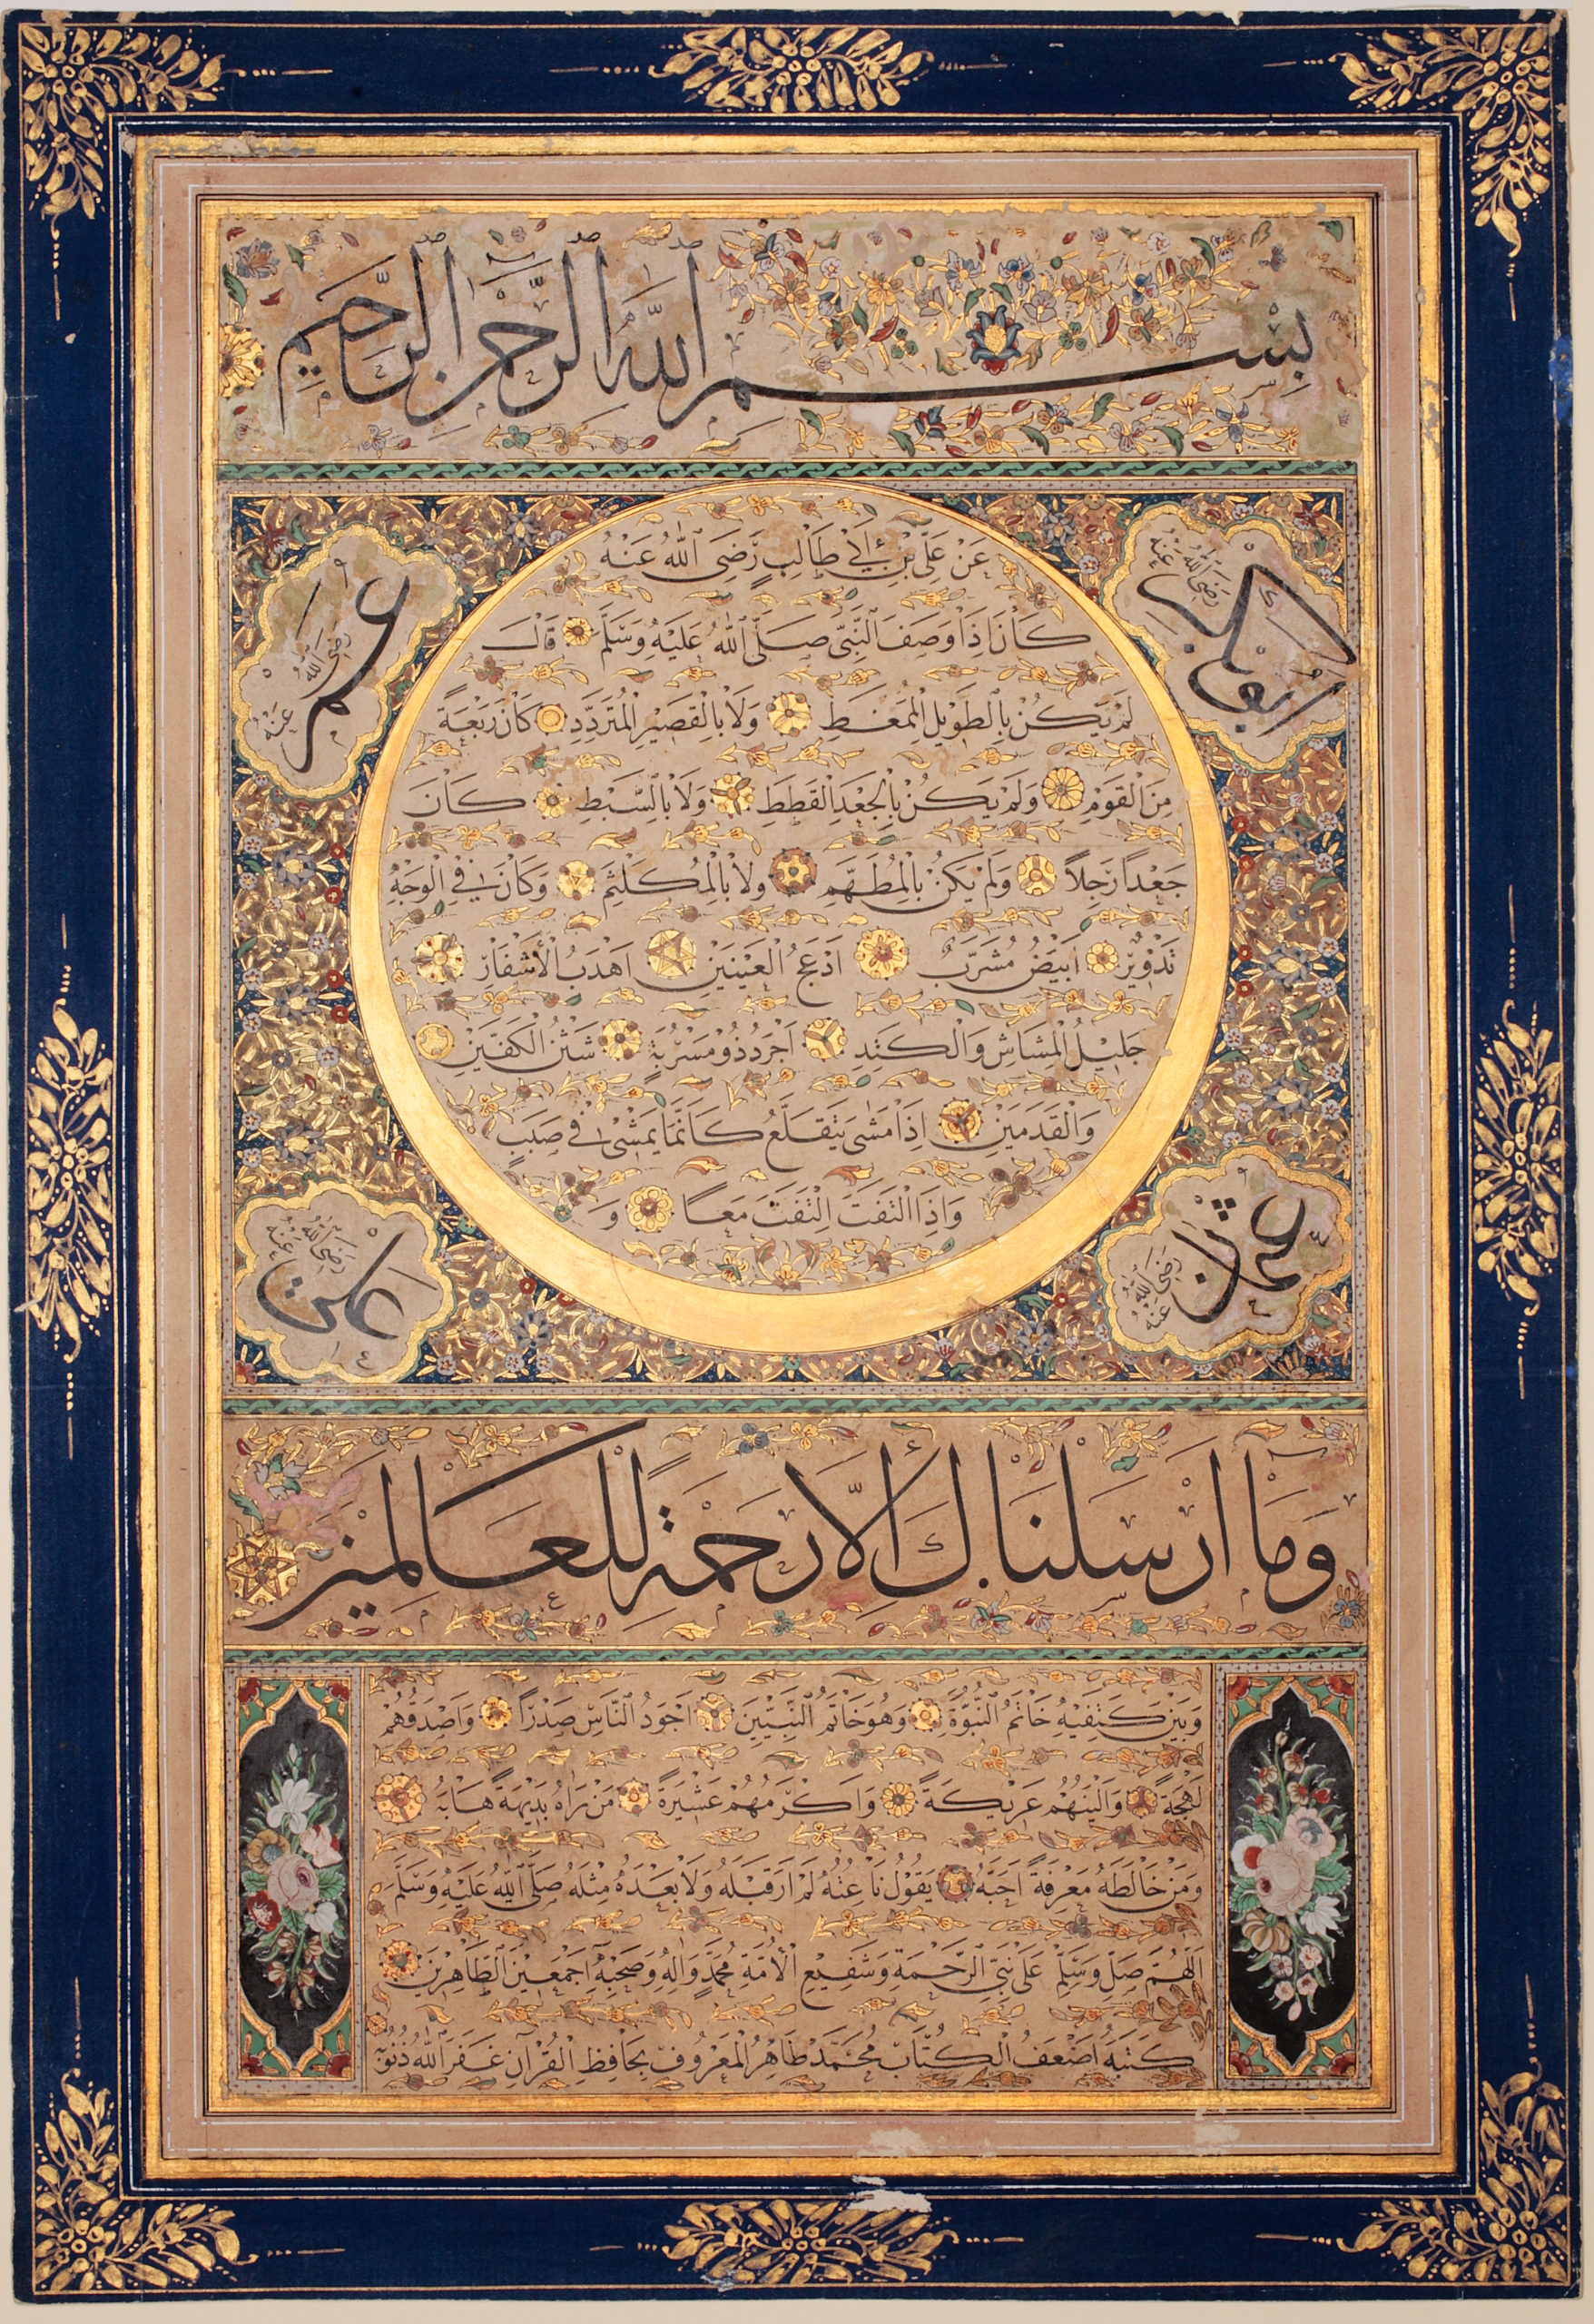 بِسْمِ اللهِ الرَّحْمٰنِ الرَّحِيمِ
ابو بكر رَضِيَ اللهُ عَنْهُ
عمر رَضِيَ اللهُ عَنْهُ
عَنْ عَلِيِّ بْنِ اَبِي طَالِبٍ رَضِيَ اللهُ عَنْهُ
كَانَ اِذَا وَصَفَ النَّبِيَّ صَلَّى اللهُ عَلَيْهِ وَسَلَّمَ قَالَ
لَمْ يَكُنْ بِالطَّوِيلِ الْمُمَغَّطِ وَلَا بِالْقَصِيرِ الْمُتَرَدِّدِ كَانَ رَبْعَةً
مِنَ الْقَوْمِ وَلَمْ يَكُنْ بِالْجَعْدِ الْقَطِطِ وَلَا بِالسَّبْطِ كَانَ
جَعْدًا رَجِلًا وَلَمْ يَكُنْ بِالْمُطَهَّمِ وَلَا بِالْمُكَلْثَمِ وَكَانَ فِي الْوَجْهِ
تَدْوِيرٌ اَبْيَضُ مُشَرَّبٌ اَدْعَجُ الْعَيْنَيْنِ اَهْدَبُ الْاَشْفَارِ
جَلِيلُ الْمُشَاشِ وَالْكَتَدِ اَجْرَدُ ذُو مَسْرُبَةٍ شَثْنُ الْكَفَّيْنِ
وَالْقَدَمَيْنِ اِذَا مَشٰى يَتَقَلَّعُ كَاَنَّمَا يَمْشِي فِي صَبَبٍ
وَاِذَا الْتَفَتَ اِلْتَفَتَ مَعًا وَ
عثمان رَضِيَ اللهُ عَنْهُ
علي رَضِيَ اللهُ عَنْهُ
وَمَا اَرْسَلْنَاكَ اِلَّا رَحْمَةً لِلْعَالَمِينَ
وَبَيْنَ كَتِفَيْهِ خَاتَمُ النُّبُوَّةِ وَهُوَ خَاتَمُ النَّبِيِّينَ اَجْوَدُ النَّاسِ صَدْرًا وَاَصْدَقُهُمْ
لَهْجَةً وَاَلْيَنُهُمْ عَرِيكَةً وَاَكْرَمُهُمْ عَشِيرَةً مَنْ رَاٰهُ بَدِيهَةً هَابَهُ
وَمَنْ خَالَطَهُ مَعْرِفَةً اَحَبَّهُ يَقُولُ نَاعِتُهُ لَمْ اَرَ قَبْلَهُ وَلَا بَعْدَهُ مِثْلَهُ صَلَّى اللهُ عَلَيْهِ وَسَلَّمَ
اَللّٰهُمَّ صَلِّ وَسَلِّمْ عَلٰى نَبِيِّ الرَّحْمَةِ وَشَفِيعِ الْاُمَّةِ مُحَمَّدٍ وَاٰلِهِ وَصَحْبِهِ اَجْمَعِينَ الطَّاهِرِينَ
كَتَبَهُ اَضْعَفُ الْكُتَّابِ مُحَمَّدْ طَاهِرُ الْمَعْرُوفُ بِحَافِظِ الْقُرْاٰنِ غَفَرَ اللهُ ذُنُوبَهُ